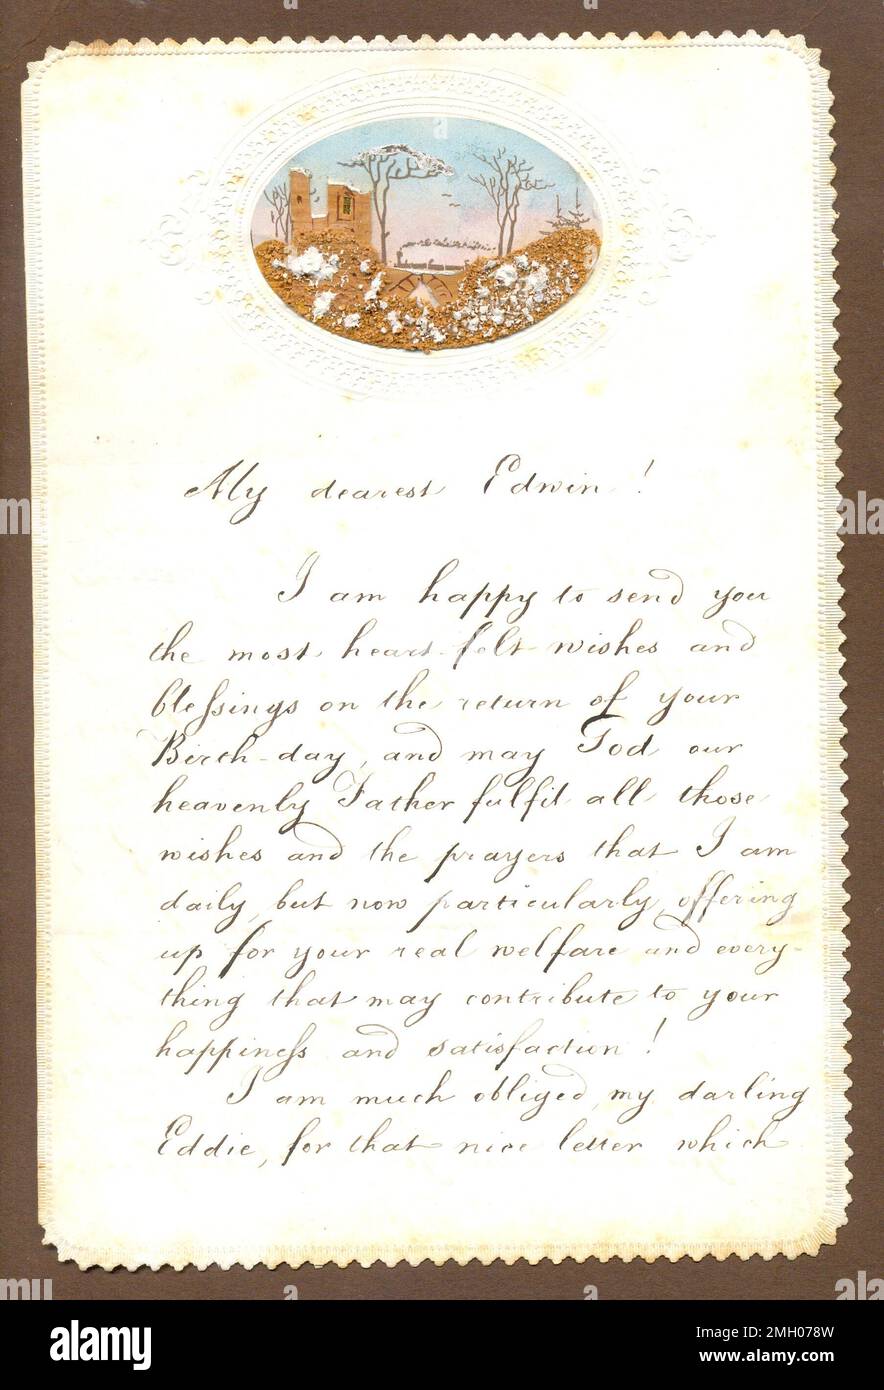 My dearest Edwin!
I am happy to send you
the most heart-felt wishes and
blessings on the return of your
Birth-day, and may God our
heavenly Father fulfil all those
wishes and the prayers that I am
daily, but now particularly offering
up for your real welfare and every-
thing that may contribute to your
happiness and satisfaction!
I am much obliged, my darling
Eddie, for that nice letter which
alamy
Image ID: 2MH078W
www.alamy.com